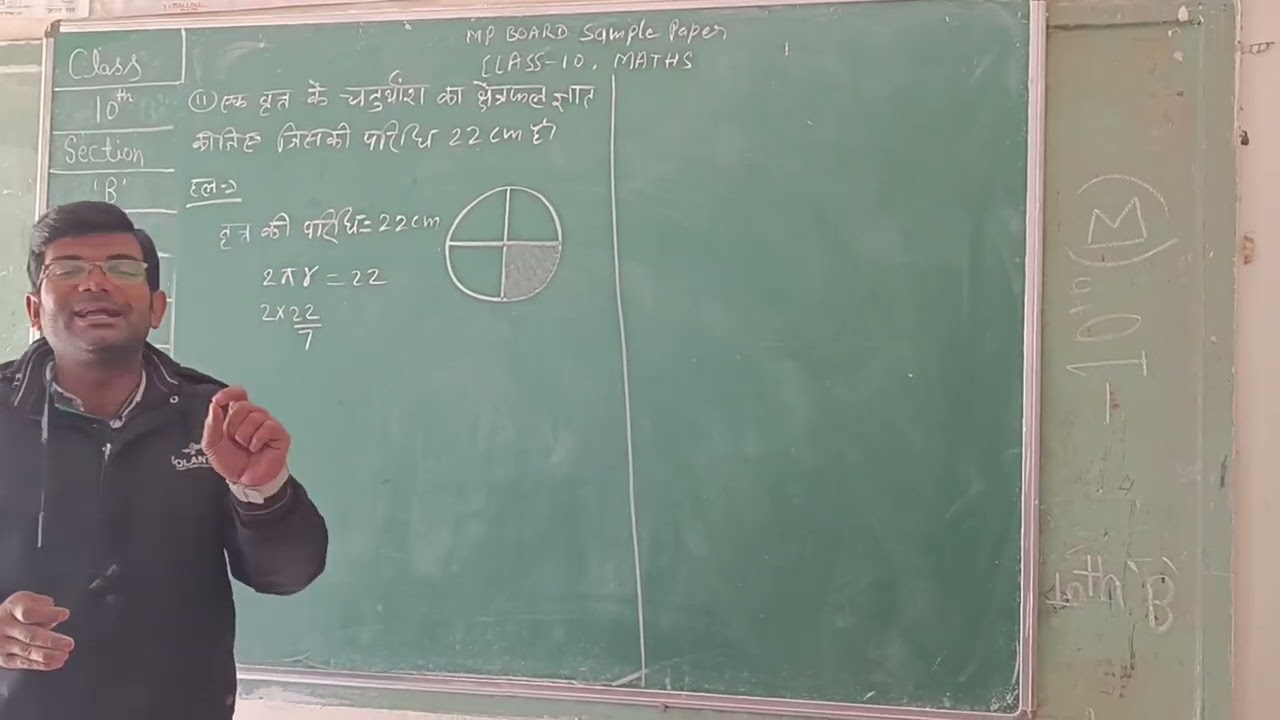 MP BOARD Sample Paper
CLASS-10, MATHS
Class
10th
Section
'B'
(11) एक वृत्त के चतुर्थांश का क्षेत्रफल ज्ञात
कीजिए जिसकी परिधि 22 cm है।
हल->
वृत्त की परिधि = 22cm
2πr = 22
2×22
7
10th (M)
9th 'B'